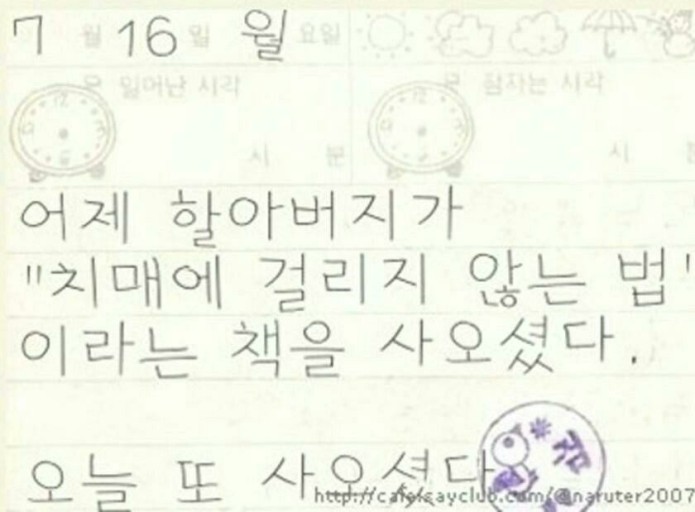 7 월 16 일 월 요일
오늘 일어난 시각 오늘 잠자는 시각
시 분 시
어제 할아버지가
"치매에 걸리지 않는 법"
이라는 책을 사오셨다.
오늘 또 사오셨다
http://cafe.sayclub.com/@naruter2007